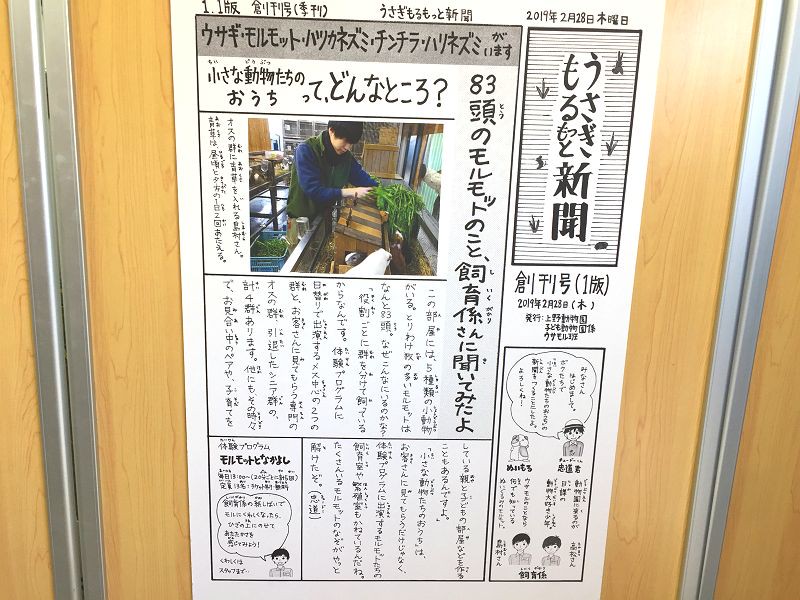 1.1版 創刊号(季刊)
うさぎもるもっと新聞
2019年2月28日木曜日
うさぎ
もるもっと
新聞
創刊号(1版)
2019年2月28日(木)
発行:上野動物園
子ども動物園係
ウサモル班
ウサギ・モルモット・ハツカネズミ・チンチラ・ハリネズミがいます
小さな動物たちの
おうち
って、どんなところ?
83頭のモルモットのこと、飼育係さんに聞いてみたよ
オスの群に青草を入れる島村さん。
青草は、昼頃と夕方の1日2回あたえる。
この部屋には、5種類の小動物
がいる。とりわけ数の多いモルモットは
なんと83頭。なぜこんなにいるのかな?
「役割ごとに群を分けて飼っている
からなんです。体験プログラムに
日替りで出演するメス中心の2つの
群と、お客さんに見てもらう専門の
オスの群、引退したシニア群の、
計4群あります。他にも、その時々
で、お見合い中のペアや、子育てを
している親子の部屋などを作る
こともあるんですよ。
小さな動物たちのおうちは、
お客さんに見てもらうだけじゃなく、
体験プログラムに出演するモルモットたちの
飼育室や繁殖室もかねているんだね。
たくさんいるモルモットのなぞがやっと
解けたぞ。(忠道)
体験プログラム
モルモットとなかよし
毎日13:00〜(20分ごとに計6回)
飼育係の紙しばいで
モルにくわしくなったら、
ひざの上にのせて
あたたかさを
感じてみよう!
くわしくは
スタッフまで…
みなさん
はじめまして。
ボクたちで
小さな動物たちのおうちの
新聞をつくることにしたよ。
よろしくね!
ぬいもる
忠道君
動物園に来るのが
日課の
動物大好き少年。
ウサモルのことなら
何でも知っている
高松さん
島村さん
飼育係